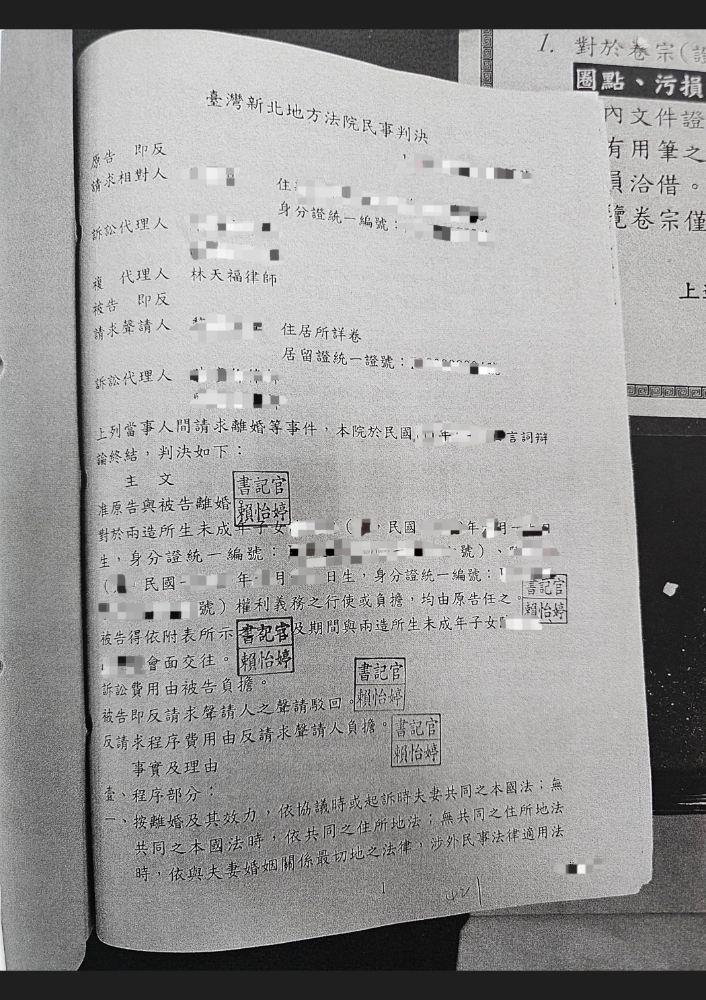 臺灣新北地方法院民事判決
原告 即反
請求相對人
住
身分證統一編號：
訴訟代理人
複 代理人 林天福律師
被告 即反
請求聲請人
住居所詳卷
居留證統一證號：
訴訟代理人
上列當事人間請求離婚等事件，本院於民國 年 言詞辯
論終結，判決如下：
主 文
准原告與被告離婚。
書記官
賴怡婷
對於兩造所生未成年子女 （ ，民國 年 月
生，身分證統一編號： 號）、
（ 民國 年 月 日生，身分證統一編號：
號）權利義務之行使或負擔，均由原告任之。
書記官
賴怡婷
被告得依附表所示 及期間與兩造所生未成年子女
會面交往。
書記官
賴怡婷
訴訟費用由被告負擔。
被告即反請求聲請人之聲請駁回。
書記官
賴怡婷
反請求程序費用由反請求聲請人負擔。
書記官
賴怡婷
事實及理由
壹、程序部分：
一、按離婚及其效力，依協議時或起訴時夫妻共同之本國法；無
共同之本國法時，依共同之住所地法；無共同之住所地法
時，依與夫妻婚姻關係最切地之法律，涉外民事法律適用法
1
1. 對於卷宗(
圈點、污損
內文件證
有用筆之
員洽借。
覽卷宗僅
上